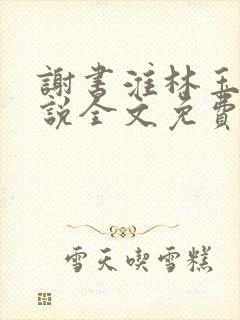 謝書淮林玉
說全文免費
雪天喫雪糕